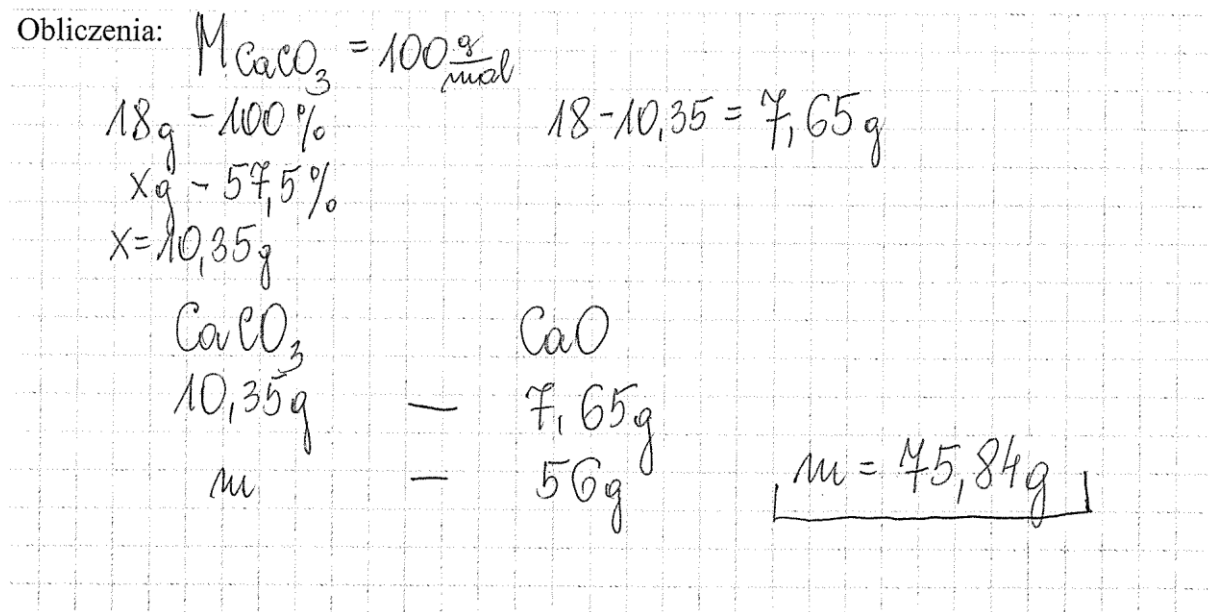 Obliczenia: M CaCO₃ = 100 g/mol
18g - 100% 18 - 10,35 = 7,65g
xg - 57,5%
x = 10,35g
CaCO₃ CaO
10,35g — 7,65g
m — 56g m = 75,84g